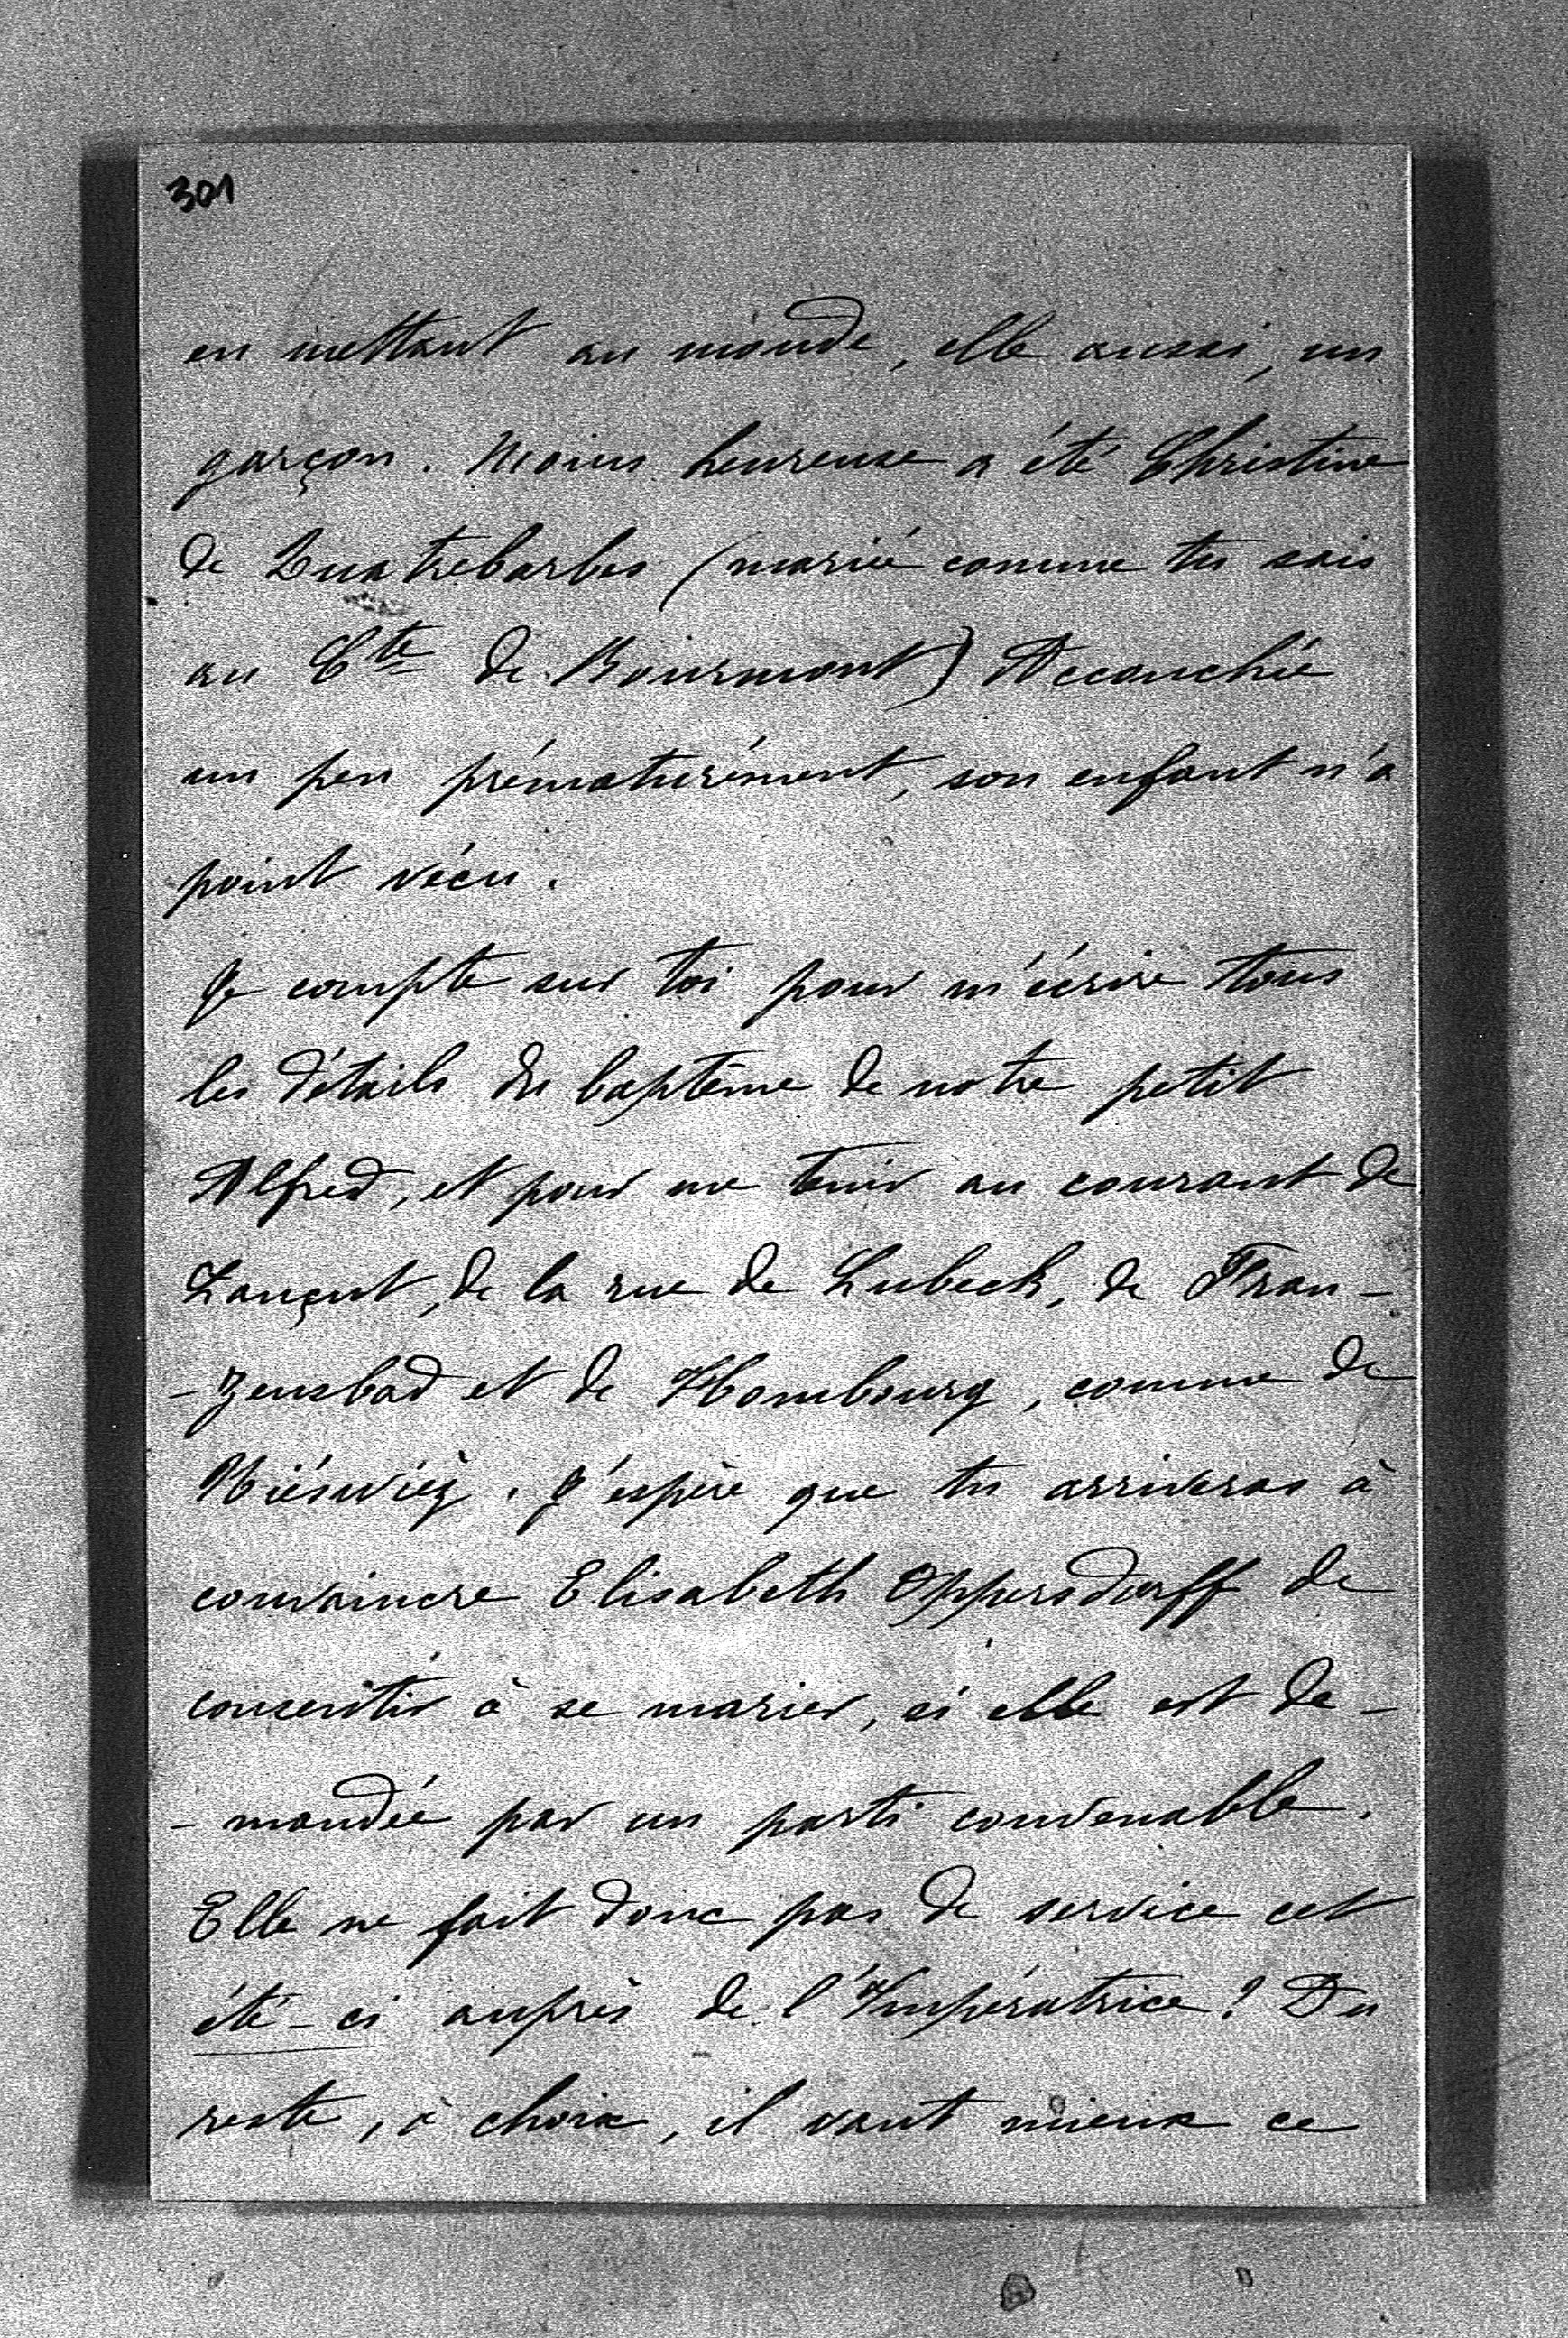 301
en mettant au monde, elle aussi, un
garçon. Moins heureuse a été Christine
de Quatrebarbes (mariée comme tu sais
au Cte de Bourmont) Accouchée
un peu prématurément, son enfant n'a
point vécu.
Je compte sur toi pour m'écrire tous
les détails du baptême de notre petit
Alfred, et pour me tenir au courant de
Lançut, de la rue de Lubeck, de Fran-
-zensbad et de Hombourg, comme de
Niéswiéz. J'espère que tu arriveras à
convaincre Elisabeth Oppersdorff de
consentir à se marier, si elle est de-
-mandée par un parti convenable.
Elle ne fait donc pas de service cet
été-ci auprès de l'Impératrice? Du
reste, à choix, il vaut mieux ce